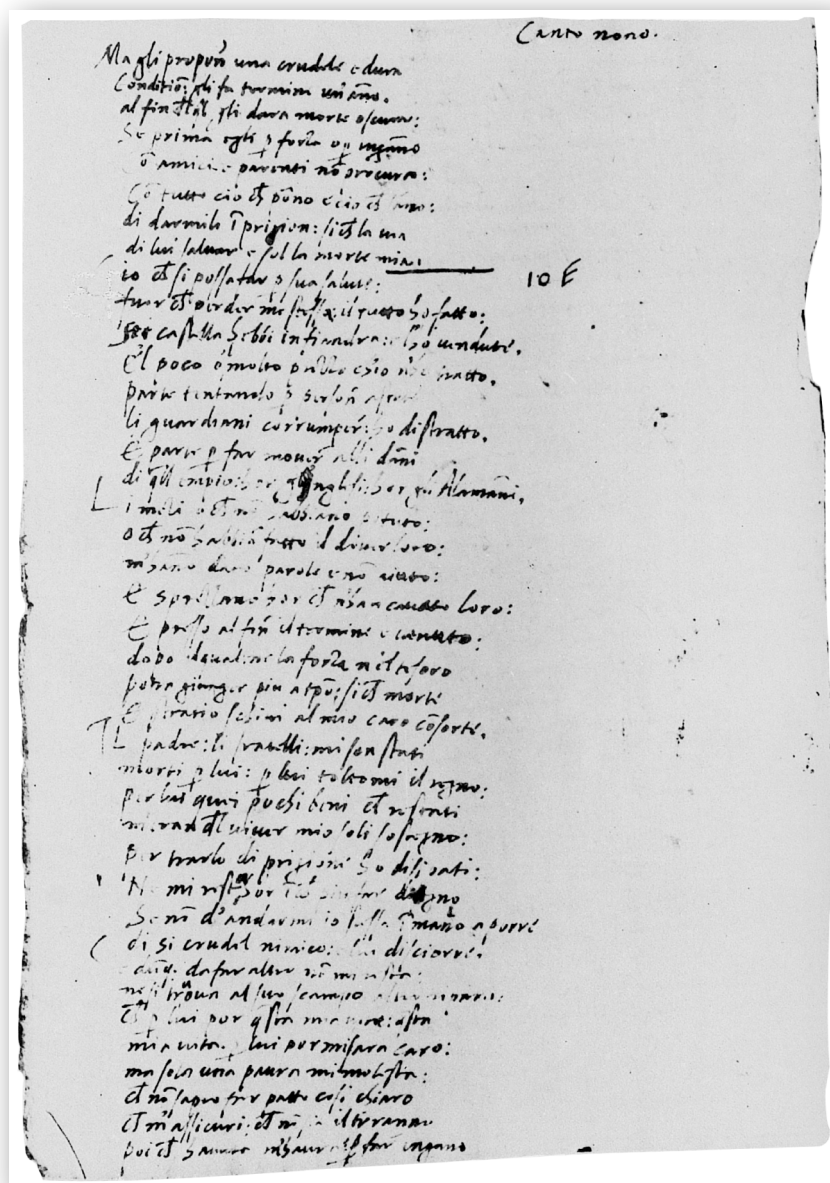 Canto nono.
Ma gli propon una crudele e dura
Conditiō: gli fa termine un año.
al fin gli dara morte oscura:
Se prima egli p forza o p ingāno
cō amici e parenti nō procura:
Cō tutto cio ch pōno e cio ch sāno:
di darmili ī prigion: si ch la via
di lui salvar e sol la morte mia.
10 E
io ch si possa far p sua salute:
fuor ch perder me stessa il tutto ho fatto:
sei castella hebbi in fiandra: e l'ho vendute.
E'l poco o'l molto ch'io n'ho tratto.
parte tentando p
li guardiani corrumper: ho distratto.
E parte p far mover alli dāni
di qll empio: hor gl'inghilesi hor gli Alamāni.
i mezi o ch nō habbiano potuto:
o ch nō habbiā fatto il dover loro:
m'hāno dato parole e nō aiuto:
E sprezzano hor ch n'hā cavato loro:
E presso al fin il termine e venuto:
dopo ilqual ne la forza ne'l tesoro
potra giunger piu a tpō: si ch morte
E stratio schivi al mio caro cōsorte.
Il padre: li fratelli: mi son stati
morti p lui: p lui toltomi il regno:
per lui quei pochi beni ch restati
m'eran del viver mio soli sostegno:
per trarlo di prigione ho disipati:
Ne mi resta hor
Se nō d'andarmi io stessa ī mano a porre
di si crudel nimico: e lui disciorre.
da far altro nō mi resta:
ne si trova al suo scampo altro riparo:
ch p lui por qsta mia vita: qsta
mia vita p lui por mi sara caro:
ma sola una paura mi molesta:
ch nō sapro far patto cosi chiaro
ch m'assicuri: ch nō il tiranno
poi ch havuta m'havra far ingano